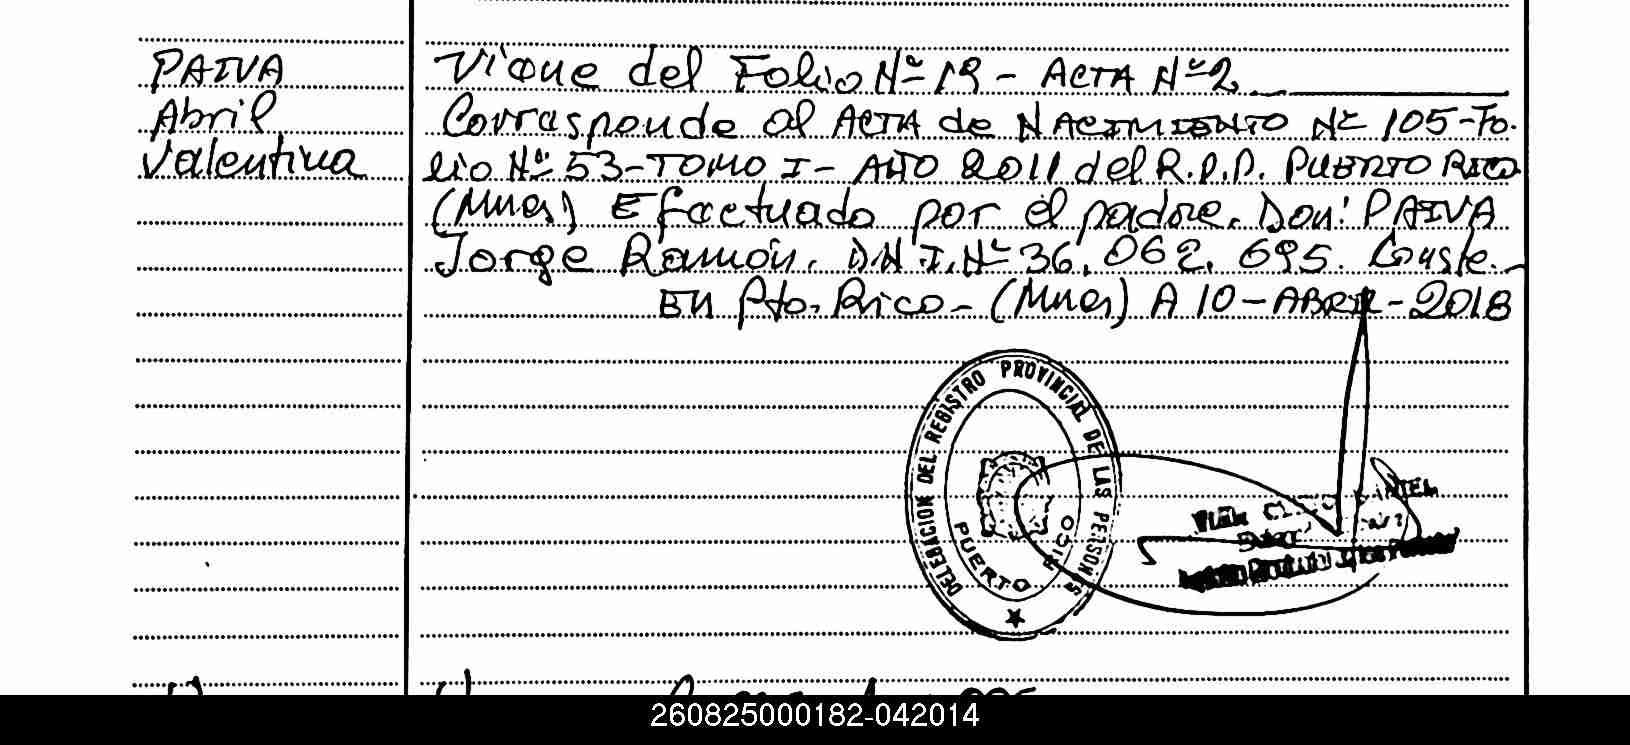 PAIVA
Abril
Valentina
Viene del Folio Nº 19 - ACTA Nº 2
Corresponde al ACTA de NACIMIENTO Nº 105-Fo-
lio Nº 53-TOMO I- AÑO 2011 del R.P.P. PUERTO RICO
(Mnes) Efectuado por el padre. Don: PAIVA
Jorge Ramón. D.N.I. Nº 36.062.695. Conste.-
EN Pto. Rico - (Mnes) A 10-ABRIL-2018
DELEGACION DEL REGISTRO PROVINCIAL DE LAS PERSONAS
PUERTO RICO
260825000182-042014